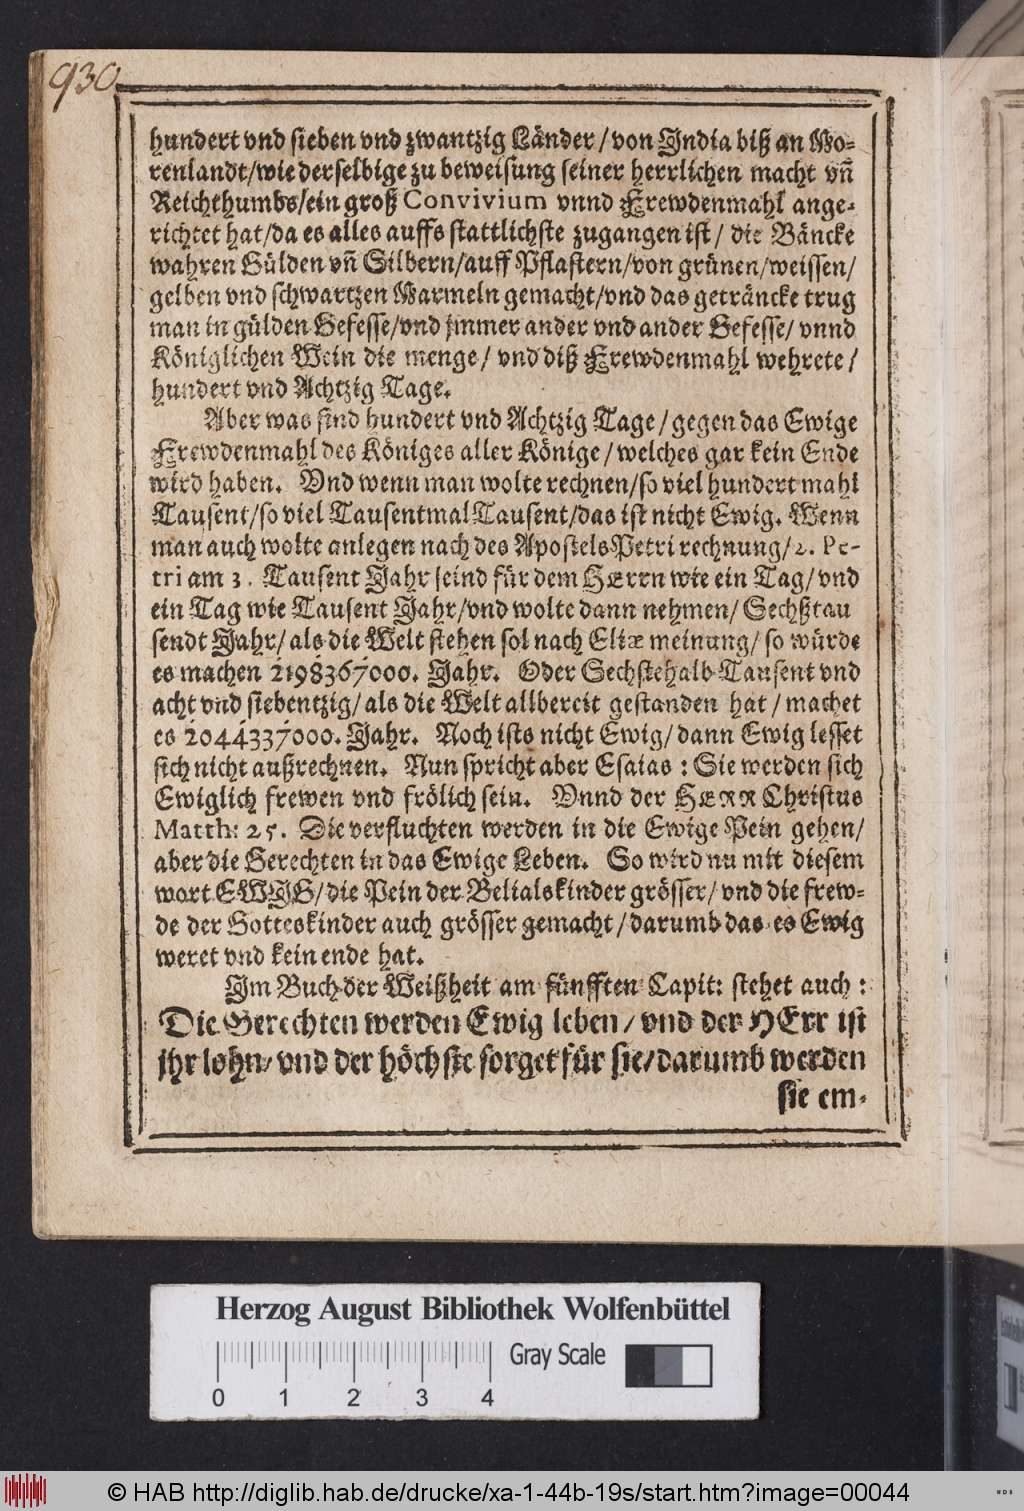 930
hundert vnd sieben vnd zwantzig Länder / von India biß an Mo-
renlandt/wie derselbige zu beweisung seiner herrlichen macht vñ
Reichthumbs/ein groß Convivium vnnd Frewdenmahl ange-
richtet hat/da es alles auffs stattlichste zugangen ist/ die Bäncke
wahren Gülden vñ Silbern/auff Pflastern/von grünen/weissen/
gelben vnd schwartzen Marmeln gemacht/vnd das geträncke trug
man in gülden Gefesse/vnd jmmer ander vnd ander Gefesse/ vnnd
Königlichen Wein die menge/ vnd diß Frewdenmahl wehrete/
hundert vnd Achtzig Tage.
Aber was sind hundert vnd Achtzig Tage/gegen das Ewige
Frewdenmahl des Königes aller Könige/welches gar kein Ende
wird haben. Vnd wenn man wolte rechnen/so viel hundert mahl
Tausent/so viel Tausentmal Tausent/das ist nicht Ewig. Wenn
man auch wolte anlegen nach des Apostels Petri rechnung/2. Pe-
tri am 3. Tausent Jahr seind für dem HErrn wie ein Tag/vnd
ein Tag wie Tausent Jahr/vnd wolte dann nehmen/ Sechßtau
sendt Jahr/als die Welt stehen sol nach Eliæ meinung/so würde
es machen 2198367000. Jahr. Oder Sechstehalb Tausent vnd
acht vnd siebentzig/als die Welt allbereit gestanden hat/machet
es 2044337000. Jahr. Noch ists nicht Ewig/dann Ewig lesset
sich nicht außrechnen. Nun spricht aber Esaias: Sie werden sich
Ewiglich frewen vnd frölich sein. Vnnd der HERR Christus
Matth: 25. Die verfluchten werden in die Ewige Pein gehen/
aber die Gerechten in das Ewige Leben. So wird nu mit diesem
wort EWIG/die Pein der Belialskinder grösser/vnd die frew-
de der Gotteskinder auch grösser gemacht/darumb das es Ewig
weret vnd kein ende hat.
Im Buch der Weißheit am fünfften Capit: stehet auch:
Die Gerechten werden Ewig leben/vnd der HErr ist
jhr lohn/vnd der höchste sorget für sie/darumb werden
sie em-
Herzog August Bibliothek Wolfenbüttel
Gray Scale
0 1 2 3 4
© HAB http://diglib.hab.de/drucke/xa-1-44b-19s/start.htm?image=00044